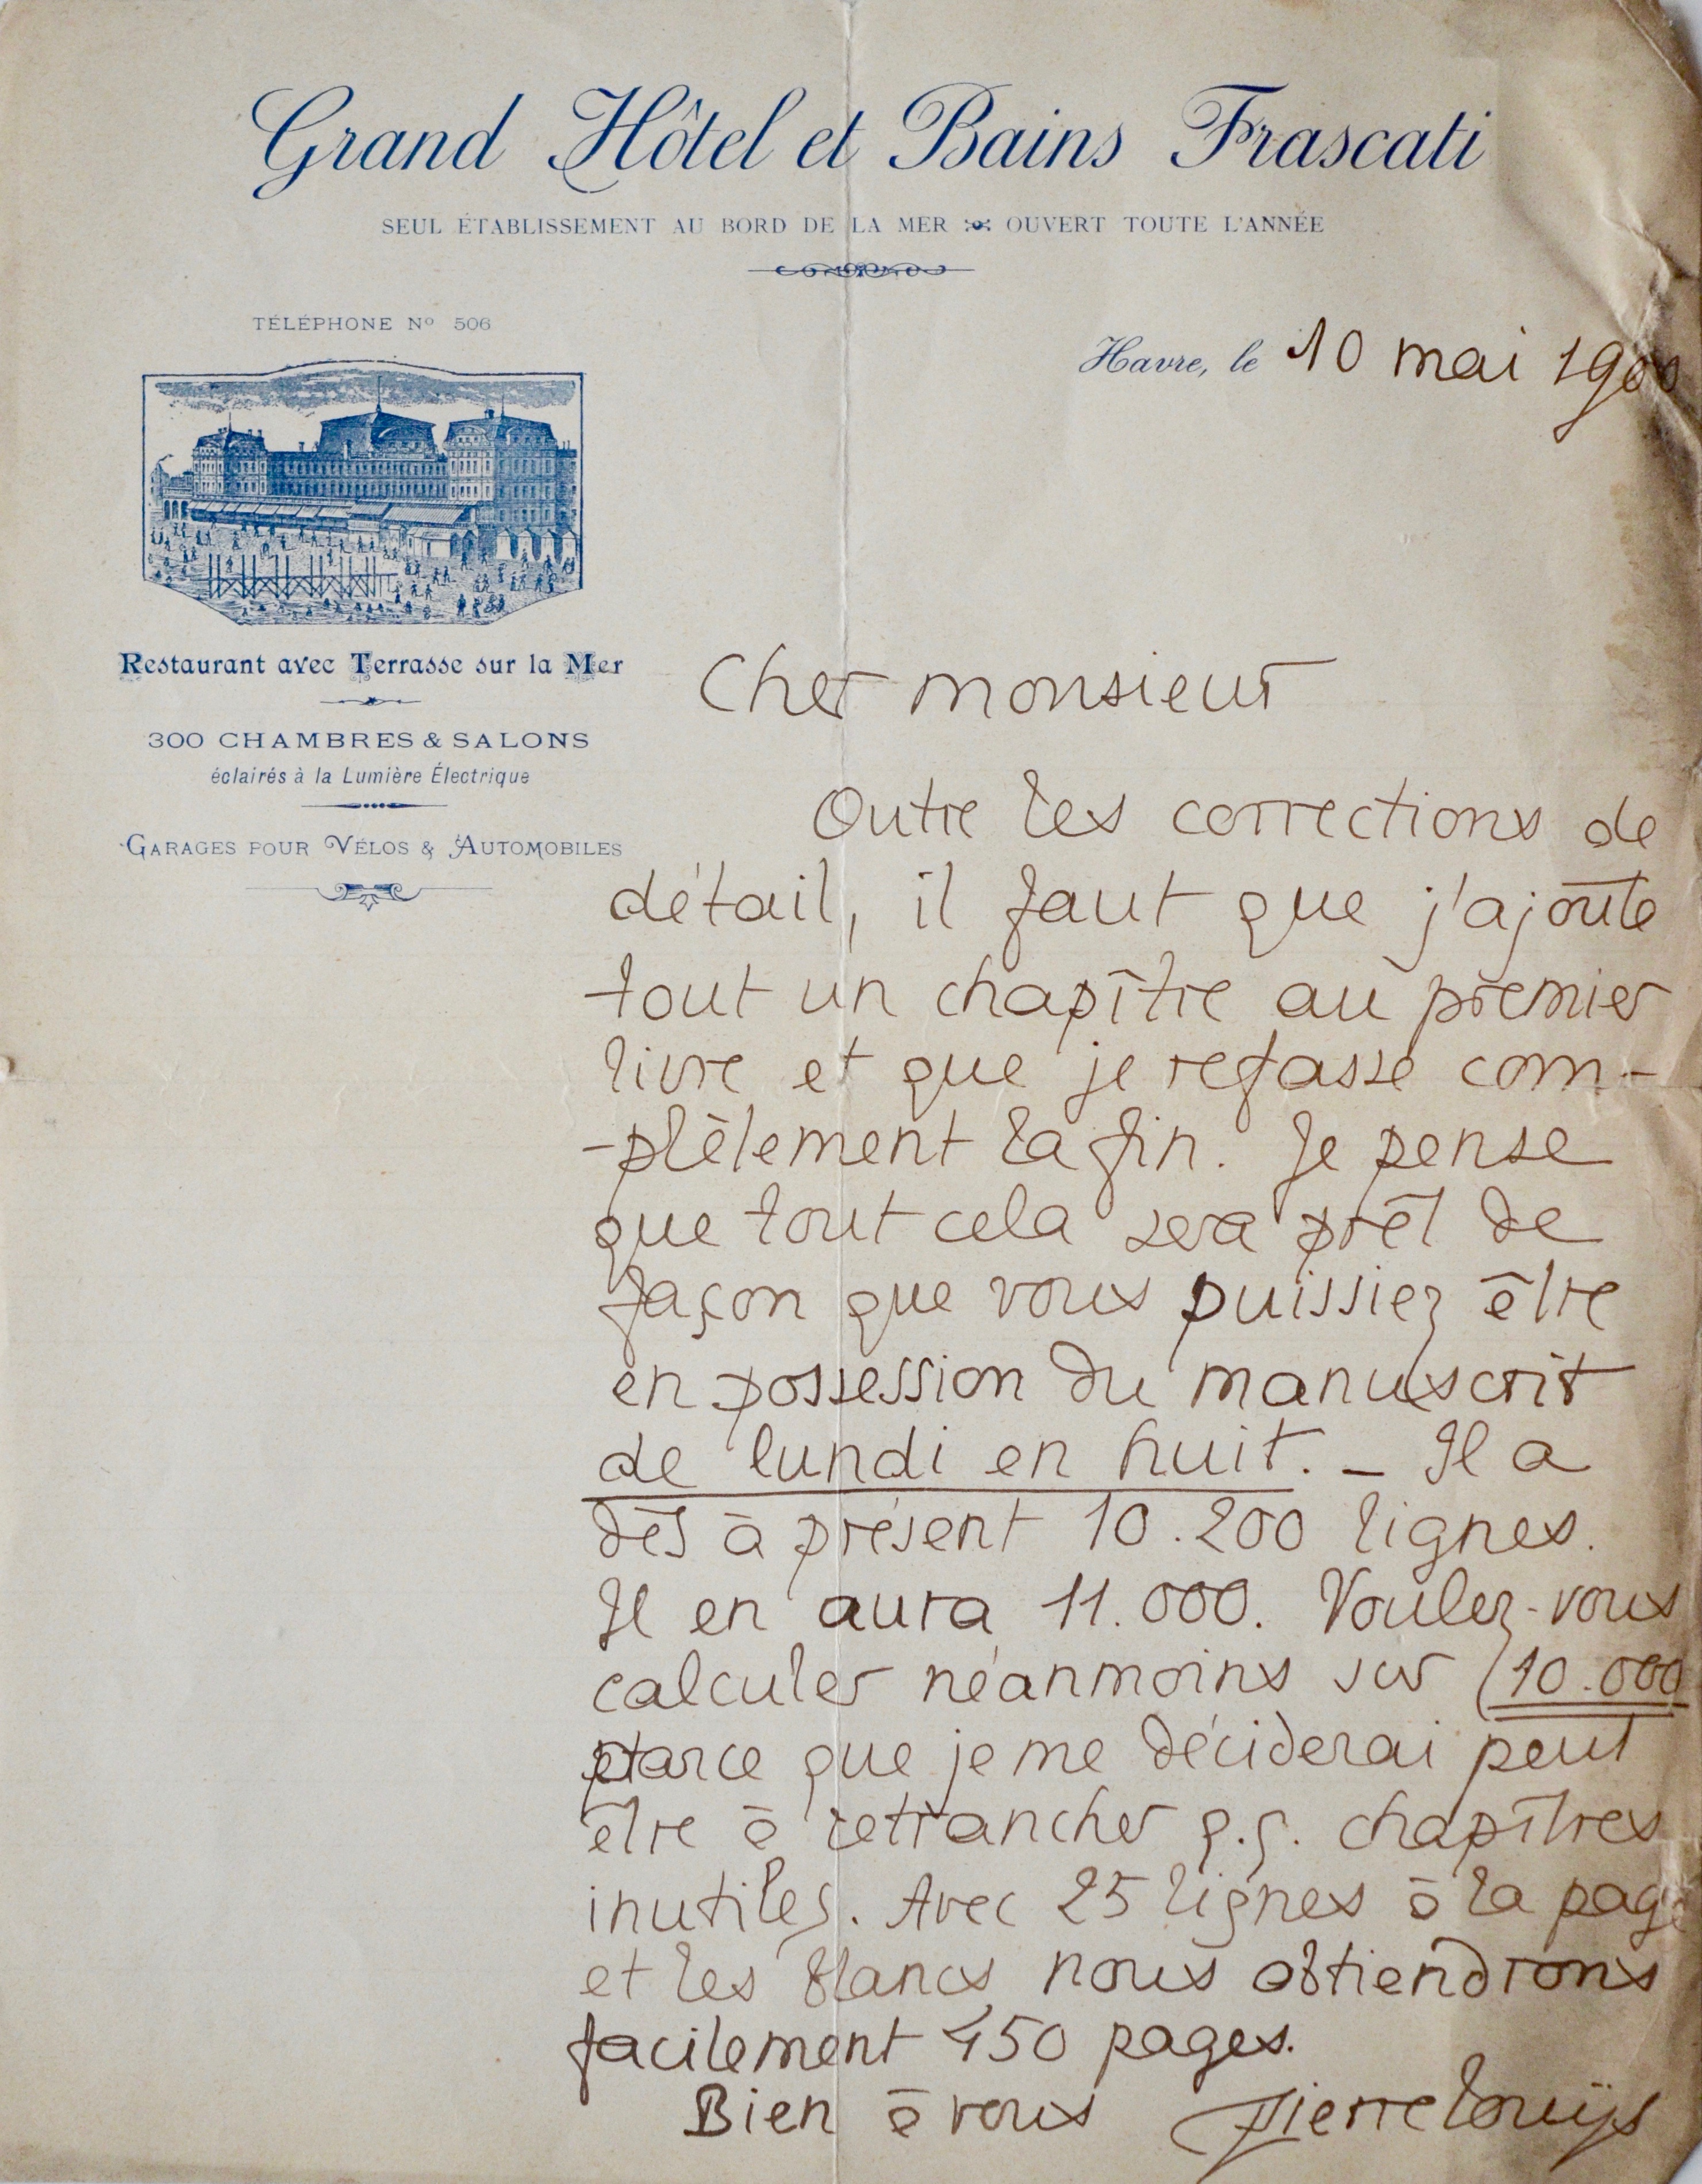 Grand Hôtel et Bains Frascati
SEUL ÉTABLISSEMENT AU BORD DE LA MER OUVERT TOUTE L'ANNÉE
TÉLÉPHONE Nº 506
Havre, le 10 mai 1900
Restaurant avec Terrasse sur la Mer
300 CHAMBRES & SALONS
éclairés à la Lumière Électrique
GARAGES POUR VÉLOS & AUTOMOBILES
Cher monsieur
Outre les corrections de
détail, il faut que j'ajoute
tout un chapître au premier
livre et que je refasse com-
-plètement la fin. Je pense
que tout cela sera prêt de
façon que vous puissiez être
en possession du manuscrit
de lundi en huit. – Il a
dès à présent 10.200 lignes.
Il en aura 11.000. Voulez-vous
calculer néanmoins sur (10.000
parce que je me déciderai peut
être à retrancher q.q. chapîtres
inutiles. Avec 25 lignes à la page
et les blancs, nous obtiendrons
facilement 450 pages.
Bien à vous Pierre Louÿs